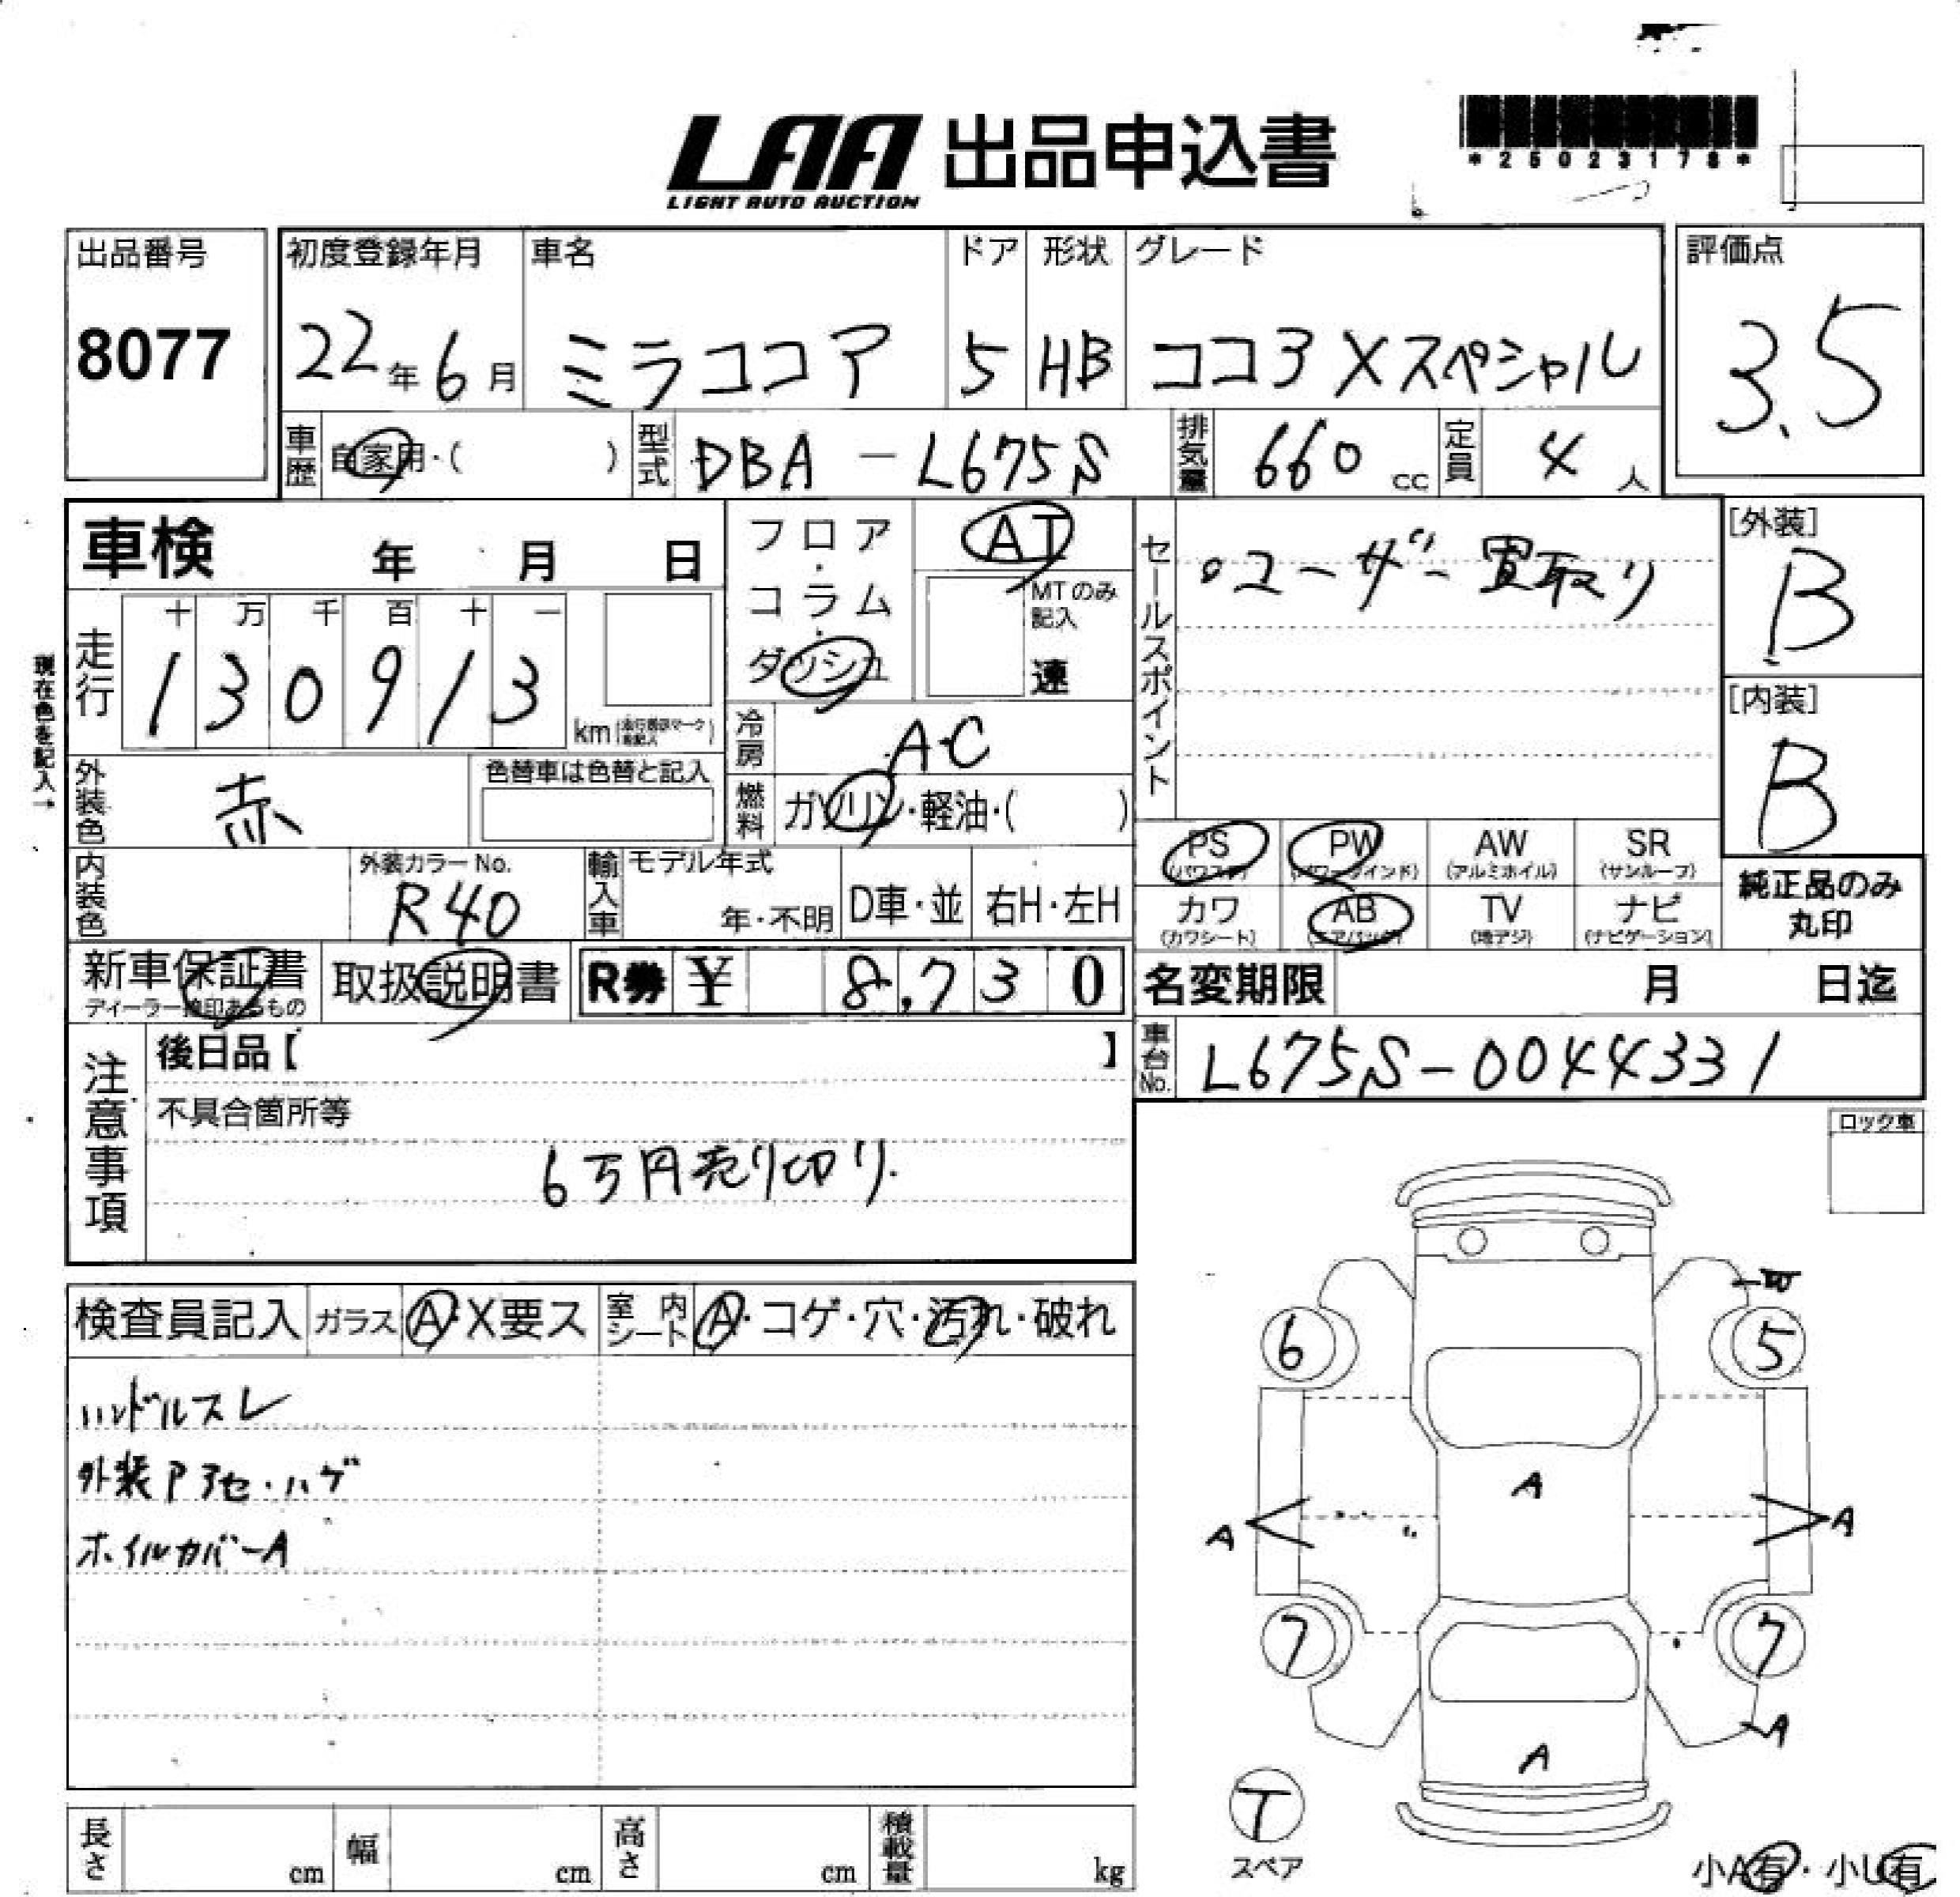 LAA 出品申込書
LIGHT AUTO AUCTION
*25023178*
出品番号 初度登録年月 車名 ドア 形状 グレード 評価点
8077 22年6月 ミラココア 5 HB ココア Xスペシャル 3.5
車歴 自家用・( ) 型式 DBA-L675S 排気量 660cc 定員 4人
車検 年 月 日
フロア・コラム・ダッシュ
AT
MTのみ記入
速
セールスポイント
・ユーザー買取り
[外装]
B
[内装]
B
現在色を記入→
走行 十 万 千 百 十 一
1 3 0 9 1 3 km
冷房 A・C
外装色 赤 色替車は色替と記入
燃料 ガソリン・軽油・( )
PS (パワステ) PW (パワーウインド) AW (アルミホイル) SR (サンルーフ)
カワ (カワシート) AB (エアバッグ) TV (地デジ) ナビ (ナビゲーション)
純正品のみ
丸印
内装色 外装カラーNo. R40
輸入車 モデル年式 年・不明 D車・並 右H・左H
新車保証書 取扱説明書 R券 ¥ 8,730
名変期限 月 日迄
車台No. L675S-0044331
注意事項
後日品【 】
不具合箇所等
6万円売り切り.
ロック車
検査員記入 ガラス A・X要ス 室内シート A・コゲ・穴・汚れ・破れ
ハンドルスレ
外装Pアセ・ハゲ
ホイルカバーA
6 5
A
A A
7 7
A
A
T
スペア
小A有・小U有
長さ cm 幅 cm 高さ cm 積載量 kg